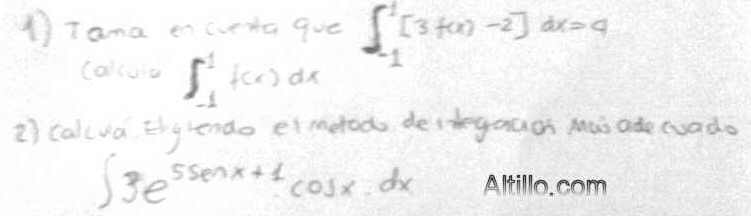 1) Toma en cuenta que ∫₋₁¹ [3 f(x) -2] dx=4
Calcula ∫₋₁¹ f(x) dx
2) Calcula Eligiendo el metodo de integracion mas adecuado
∫3e^(5senx+1) cosx. dx Altillo.com